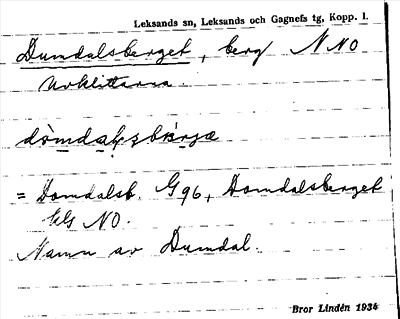 Leksands sn, Leksands och Gagnefs tg, Kopp. l.
Dumdalsberget, berg NNO
Urklittarna.
= Domdalsb. G96, Domdalsberget
NO.
Namn av Dumdal.
Bror Lindén 1934